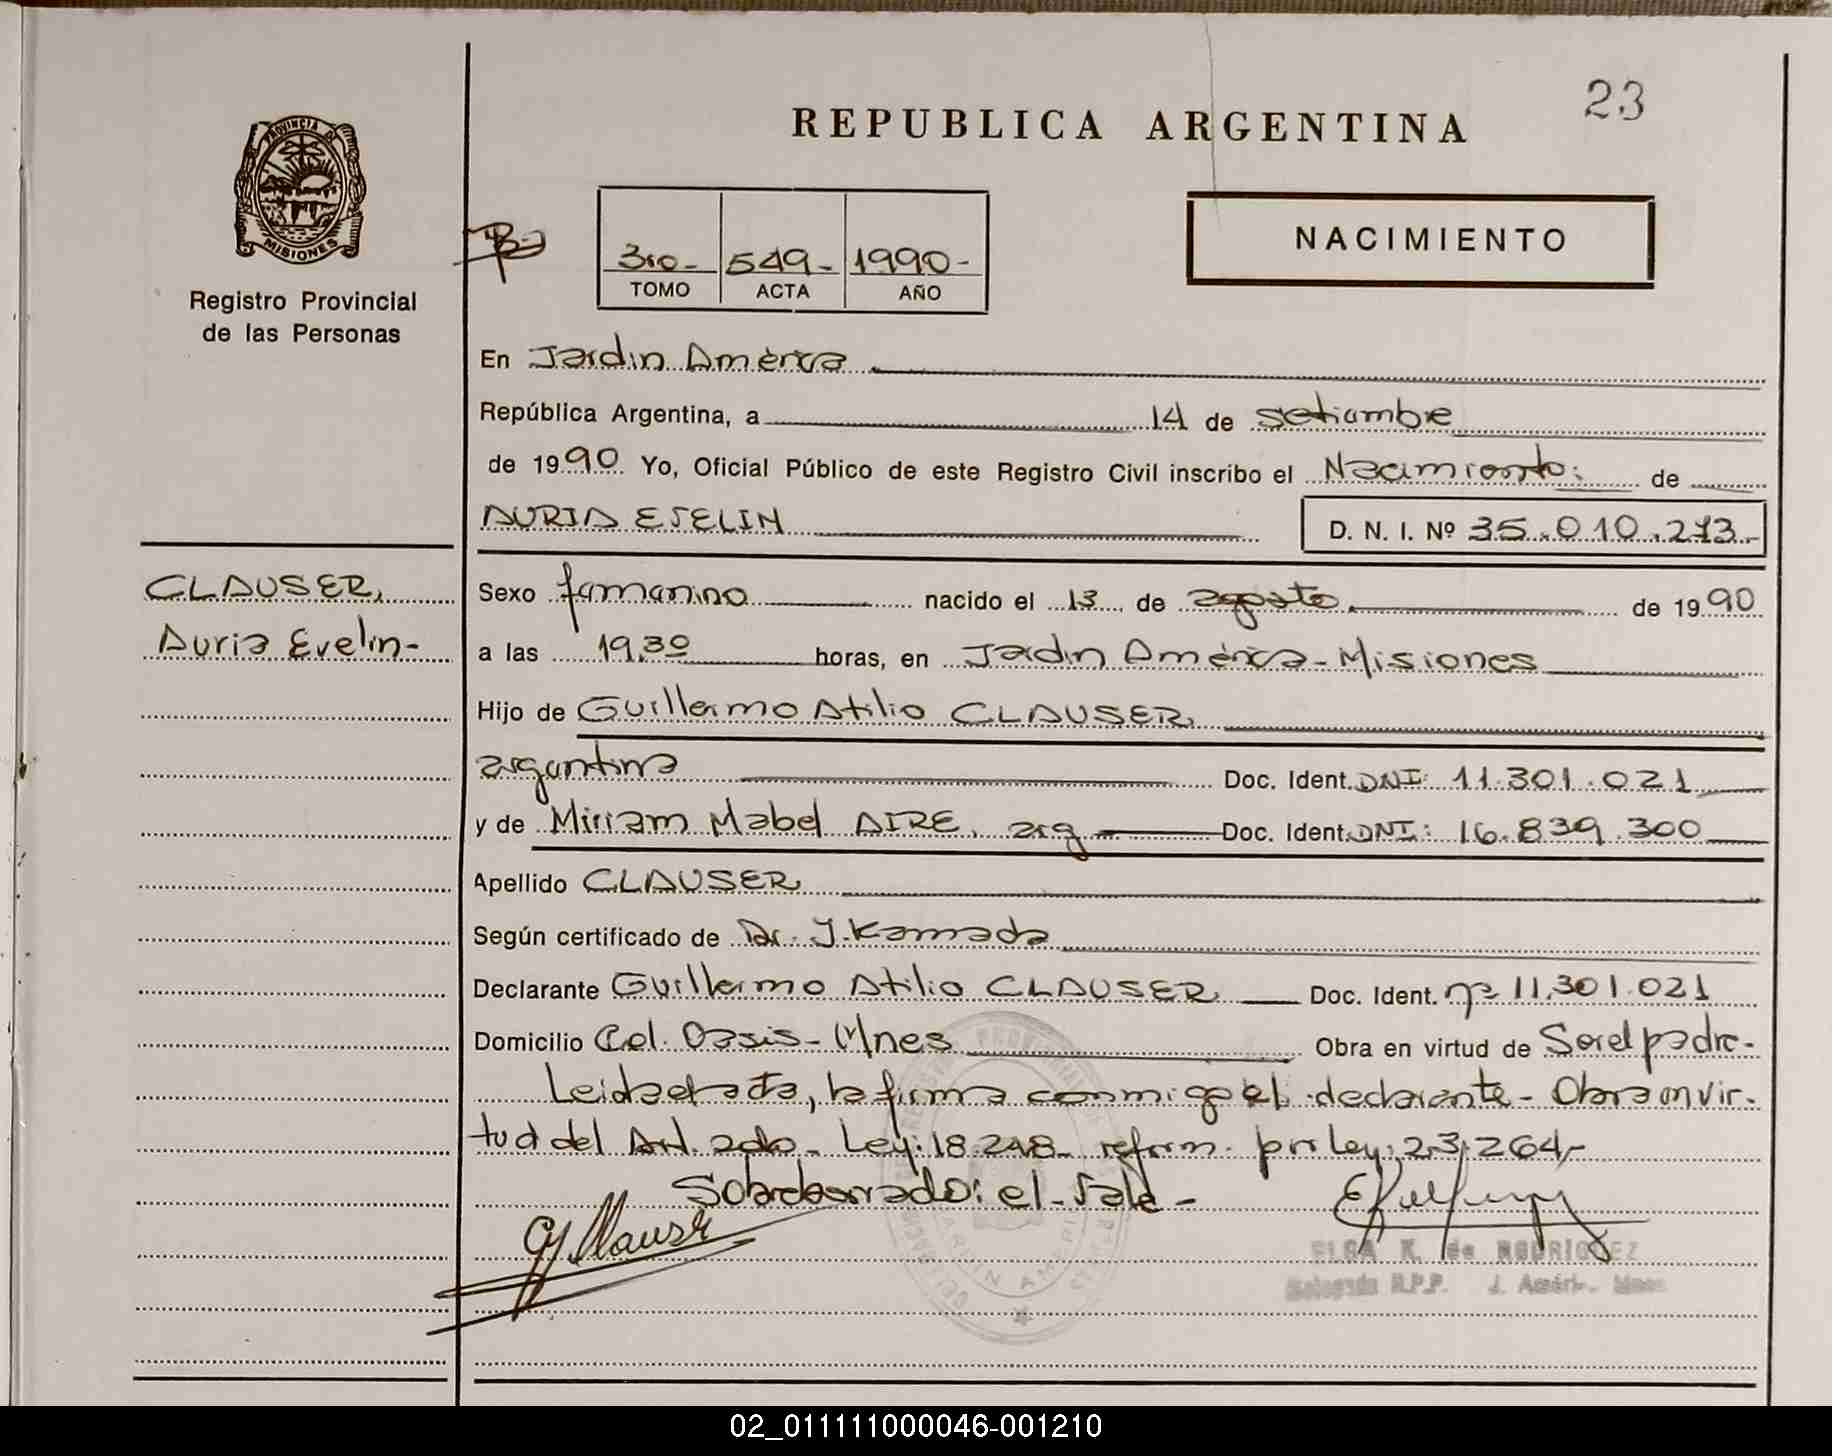 23
REPUBLICA ARGENTINA
PROVINCIA DE
MISIONES
Registro Provincial
de las Personas
3ro- 549- 1990-
TOMO ACTA AÑO
NACIMIENTO
En Jardin América
República Argentina, a 14 de setiembre
de 1990 Yo, Oficial Público de este Registro Civil inscribo el Nacimiento: de
AURIA EVELIN D. N. I. Nº 35.010.273-
CLAUSER,
Auria Evelin-
Sexo femenino nacido el 13 de agosto de 1990
a las 19,30 horas, en Jardin América-Misiones
Hijo de Guillermo Atilio CLAUSER,
argentina Doc. Ident. DNI: 11.301.021
y de Miriam Mabel AIRE, arg Doc. Ident. DNI: 16.839.300
Apellido CLAUSER
Según certificado de Dr. J. Kamada
Declarante Guillermo Atilio CLAUSER Doc. Ident. nº 11.301.021
Domicilio Col. Oasis-Mnes Obra en virtud de Ser el padre-
Leida el acta, la firma conmigo el declarante- Obra en vir-
tud del Art. 2do- Ley: 18.248- reform. por Ley: 23.264,-
Sobreborrado: el- Vale-
G Clauser
ELSA K. de RODRIGUEZ
Delegada R.P.P. J. Améri. Mnes
02_011111000046-001210